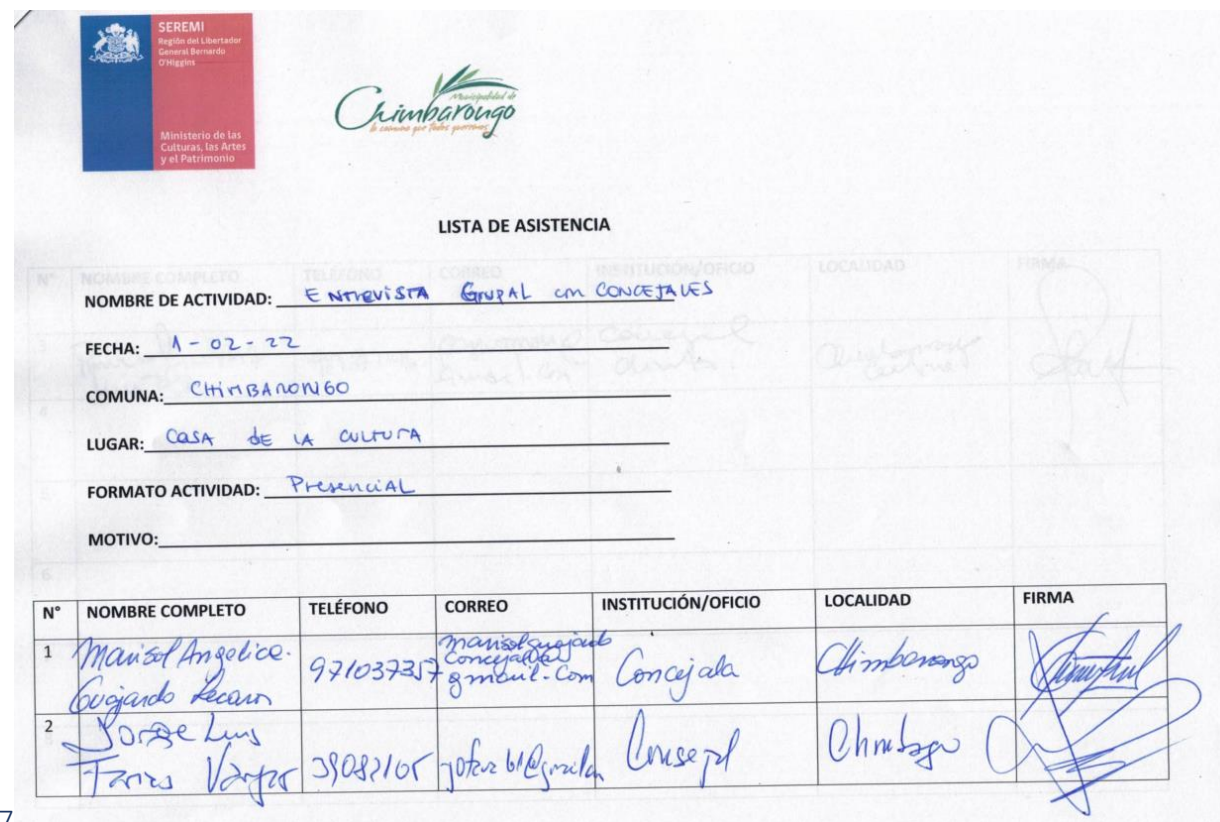 SEREMI
Región del Libertador
General Bernardo
O'Higgins
Ministerio de las
Culturas, las Artes
y el Patrimonio
Municipalidad de
Chimbarongo
la comuna que Todos queremos
LISTA DE ASISTENCIA
NOMBRE DE ACTIVIDAD: ENTREVISTA GRUPAL con CONCEJALES
FECHA: 1-02-22
COMUNA: CHIMBARONGO
LUGAR: CASA de LA CULTURA
FORMATO ACTIVIDAD: PresenciAL
MOTIVO:
N° NOMBRE COMPLETO TELÉFONO CORREO INSTITUCIÓN/OFICIO LOCALIDAD FIRMA
1 Marisol Angelica 971037357 Concejala Chimbarongo
gmail.com
2 Jorge Luis
Vargas 39082105
7